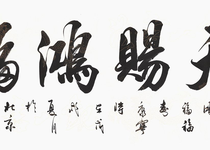 天賜鴻福
福
壽
康寧
時
夏月
於
北京